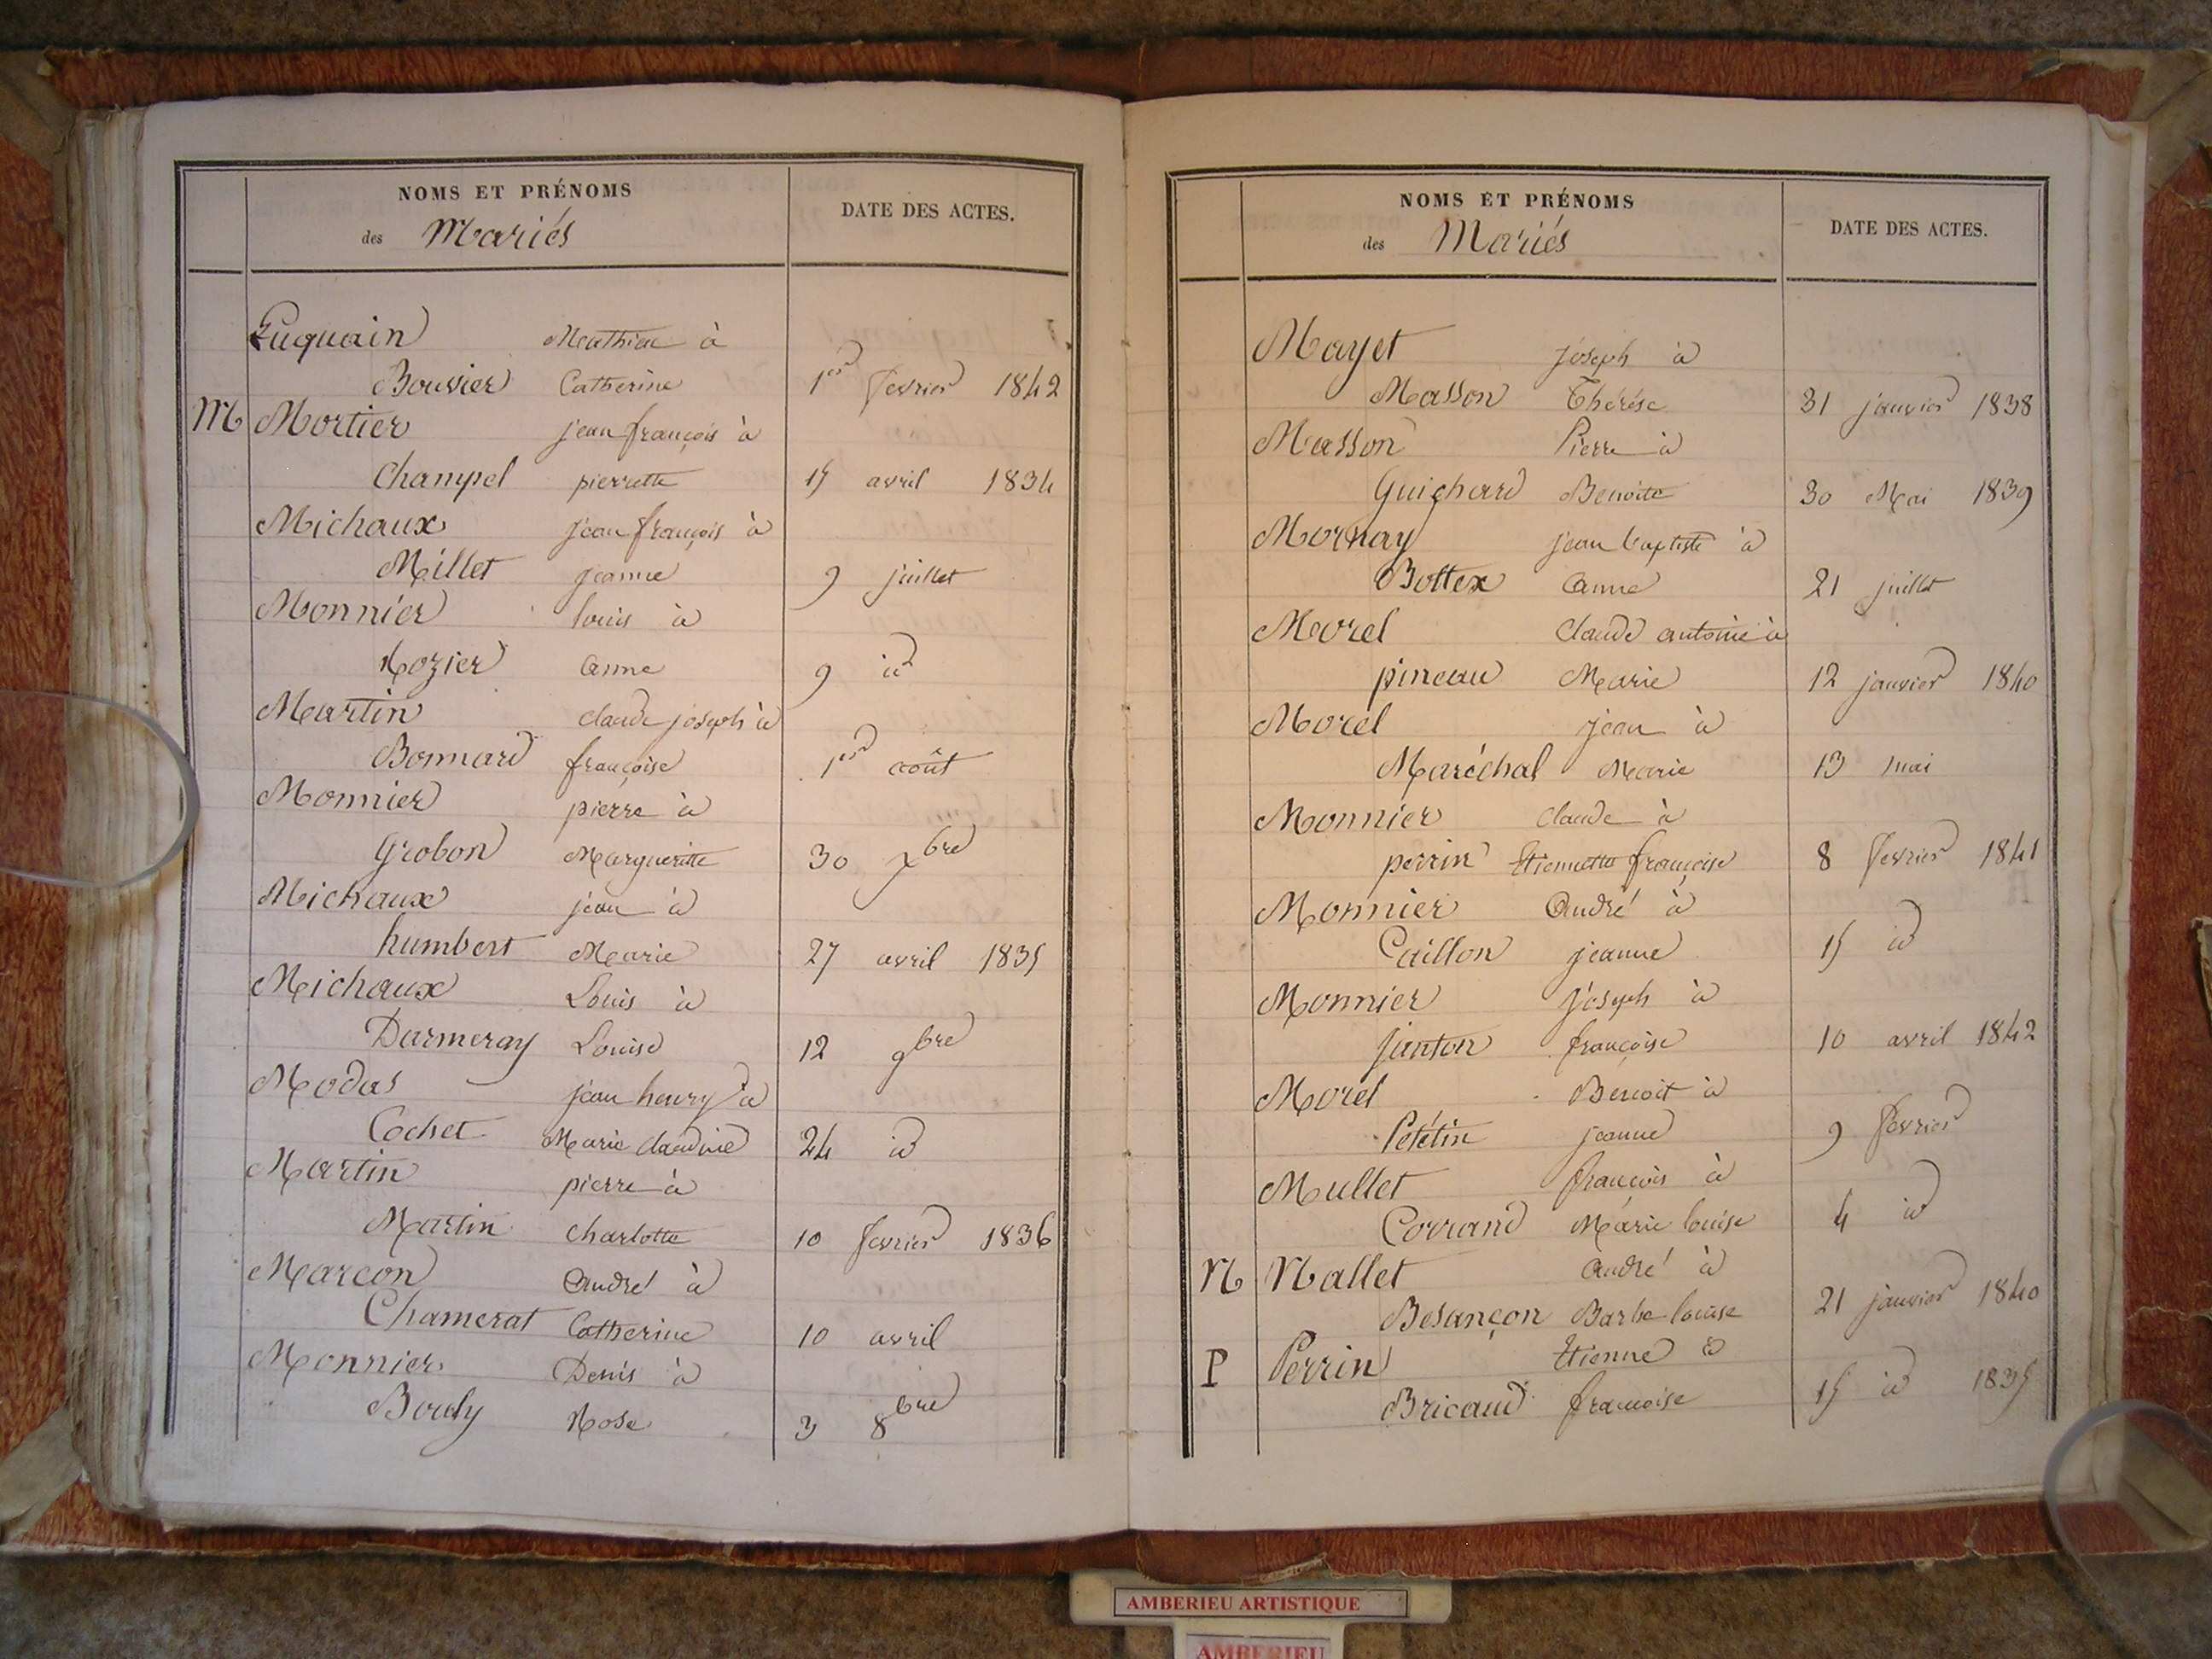 NOMS ET PRÉNOMS
des Mariés
DATE DES ACTES.
Luquain Mathieu à
Bouvier Catherine 1er fevrier 1842
M Mortier jean françois à
Champel pierrette 15 avril 1834
Michaux jean françois à
Millet jeanne 9 juillet
Monnier louis à
Rozier anne 9 id
Martin claude joseph à
Bonnard françoise 1er août
Monnier pierre à
Grobon Marguerite 30 xbre
Michaux jean à
humbert Marie 27 avril 1835
Michaux Louis à
Darmeray Louise 12 9bre
Modas jean henry à
Cochet Marie claudine 24 id
Martin pierre à
Martin charlotte 10 fevrier 1836
Marcon André à
Chamerat Catherine 10 avril
Monnier Denis à
Bouly Rose 3 8bre
NOMS ET PRÉNOMS
des Mariés
DATE DES ACTES.
Mayet joseph à
Masson Thérèse 31 janvier 1838
Masson Pierre à
Guichard Benoite 30 Mai 1839
Mornay jean baptiste à
Bottex anne 21 juillet
Morel claude antoine à
pineau Marie 12 janvier 1840
Morel jean à
Maréchal Marie 13 mai
Monnier claude à
perrin Etiennette françoise 8 fevrier 1841
Monnier André à
Caillon jeanne 15 id
Monnier joseph à
janton françoise 10 avril 1842
Morel Benoit à
Petétin jeanne 9 février
Mullet françois à
Corrand Marie louise 4 id
N Nallet andré à
Besançon Barbe louise 21 janvier 1840
P Perrin Etienne à
Bricaud francoise 15 id 1835
AMBERIEU ARTISTIQUE
AMBERIEU